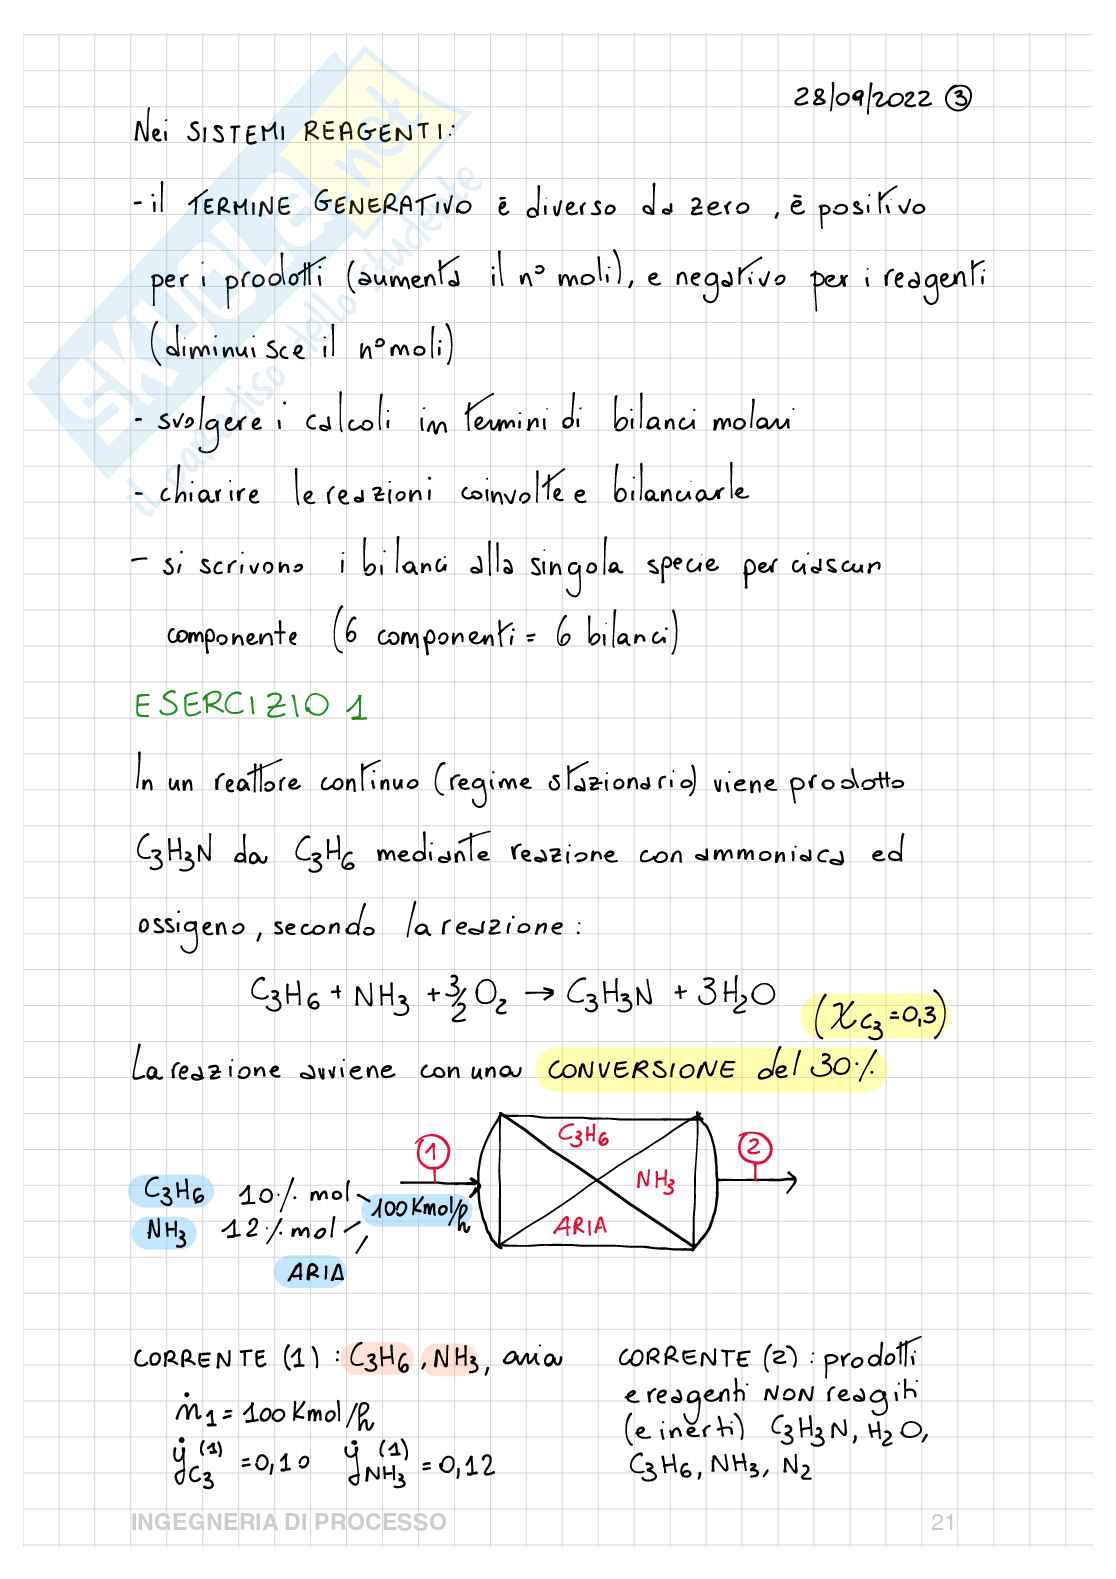 28/09/2022 ③
Nei SISTEMI REAGENTI:
- il TERMINE GENERATIVO è diverso da zero, è positivo
per i prodotti (aumenta il n° moli), e negativo per i reagenti
(diminuisce il n° moli)
- svolgere i calcoli in termini di bilanci molari
- chiarire le reazioni coinvolte e bilanciarle
- si scrivono i bilanci alla singola specie per ciascun
componente (6 componenti = 6 bilanci)
ESERCIZIO 1
In un reattore continuo (regime stazionario) viene prodotto
C₃H₃N da C₃H₆ mediante reazione con ammoniaca ed
ossigeno, secondo la reazione:
C₃H₆ + NH₃ + 3/2 O₂ → C₃H₃N + 3H₂O (χC₃ = 0,3)
La reazione avviene con una CONVERSIONE del 30%
C₃H₆ 10% mol
NH₃ 12% mol
ARIA
100 Kmol/h
1
C₃H₆
NH₃
ARIA
2
CORRENTE (1): C₃H₆, NH₃, aria
ṁ₁ = 100 Kmol/h
ẏC₃⁽¹⁾ = 0,10 ẏNH₃⁽¹⁾ = 0,12
CORRENTE (2): prodotti
e reagenti NON reagiti
(e inerti) C₃H₃N, H₂O,
C₃H₆, NH₃, N₂
INGEGNERIA DI PROCESSO 21
SKUOLA.net
il paradiso dello studente